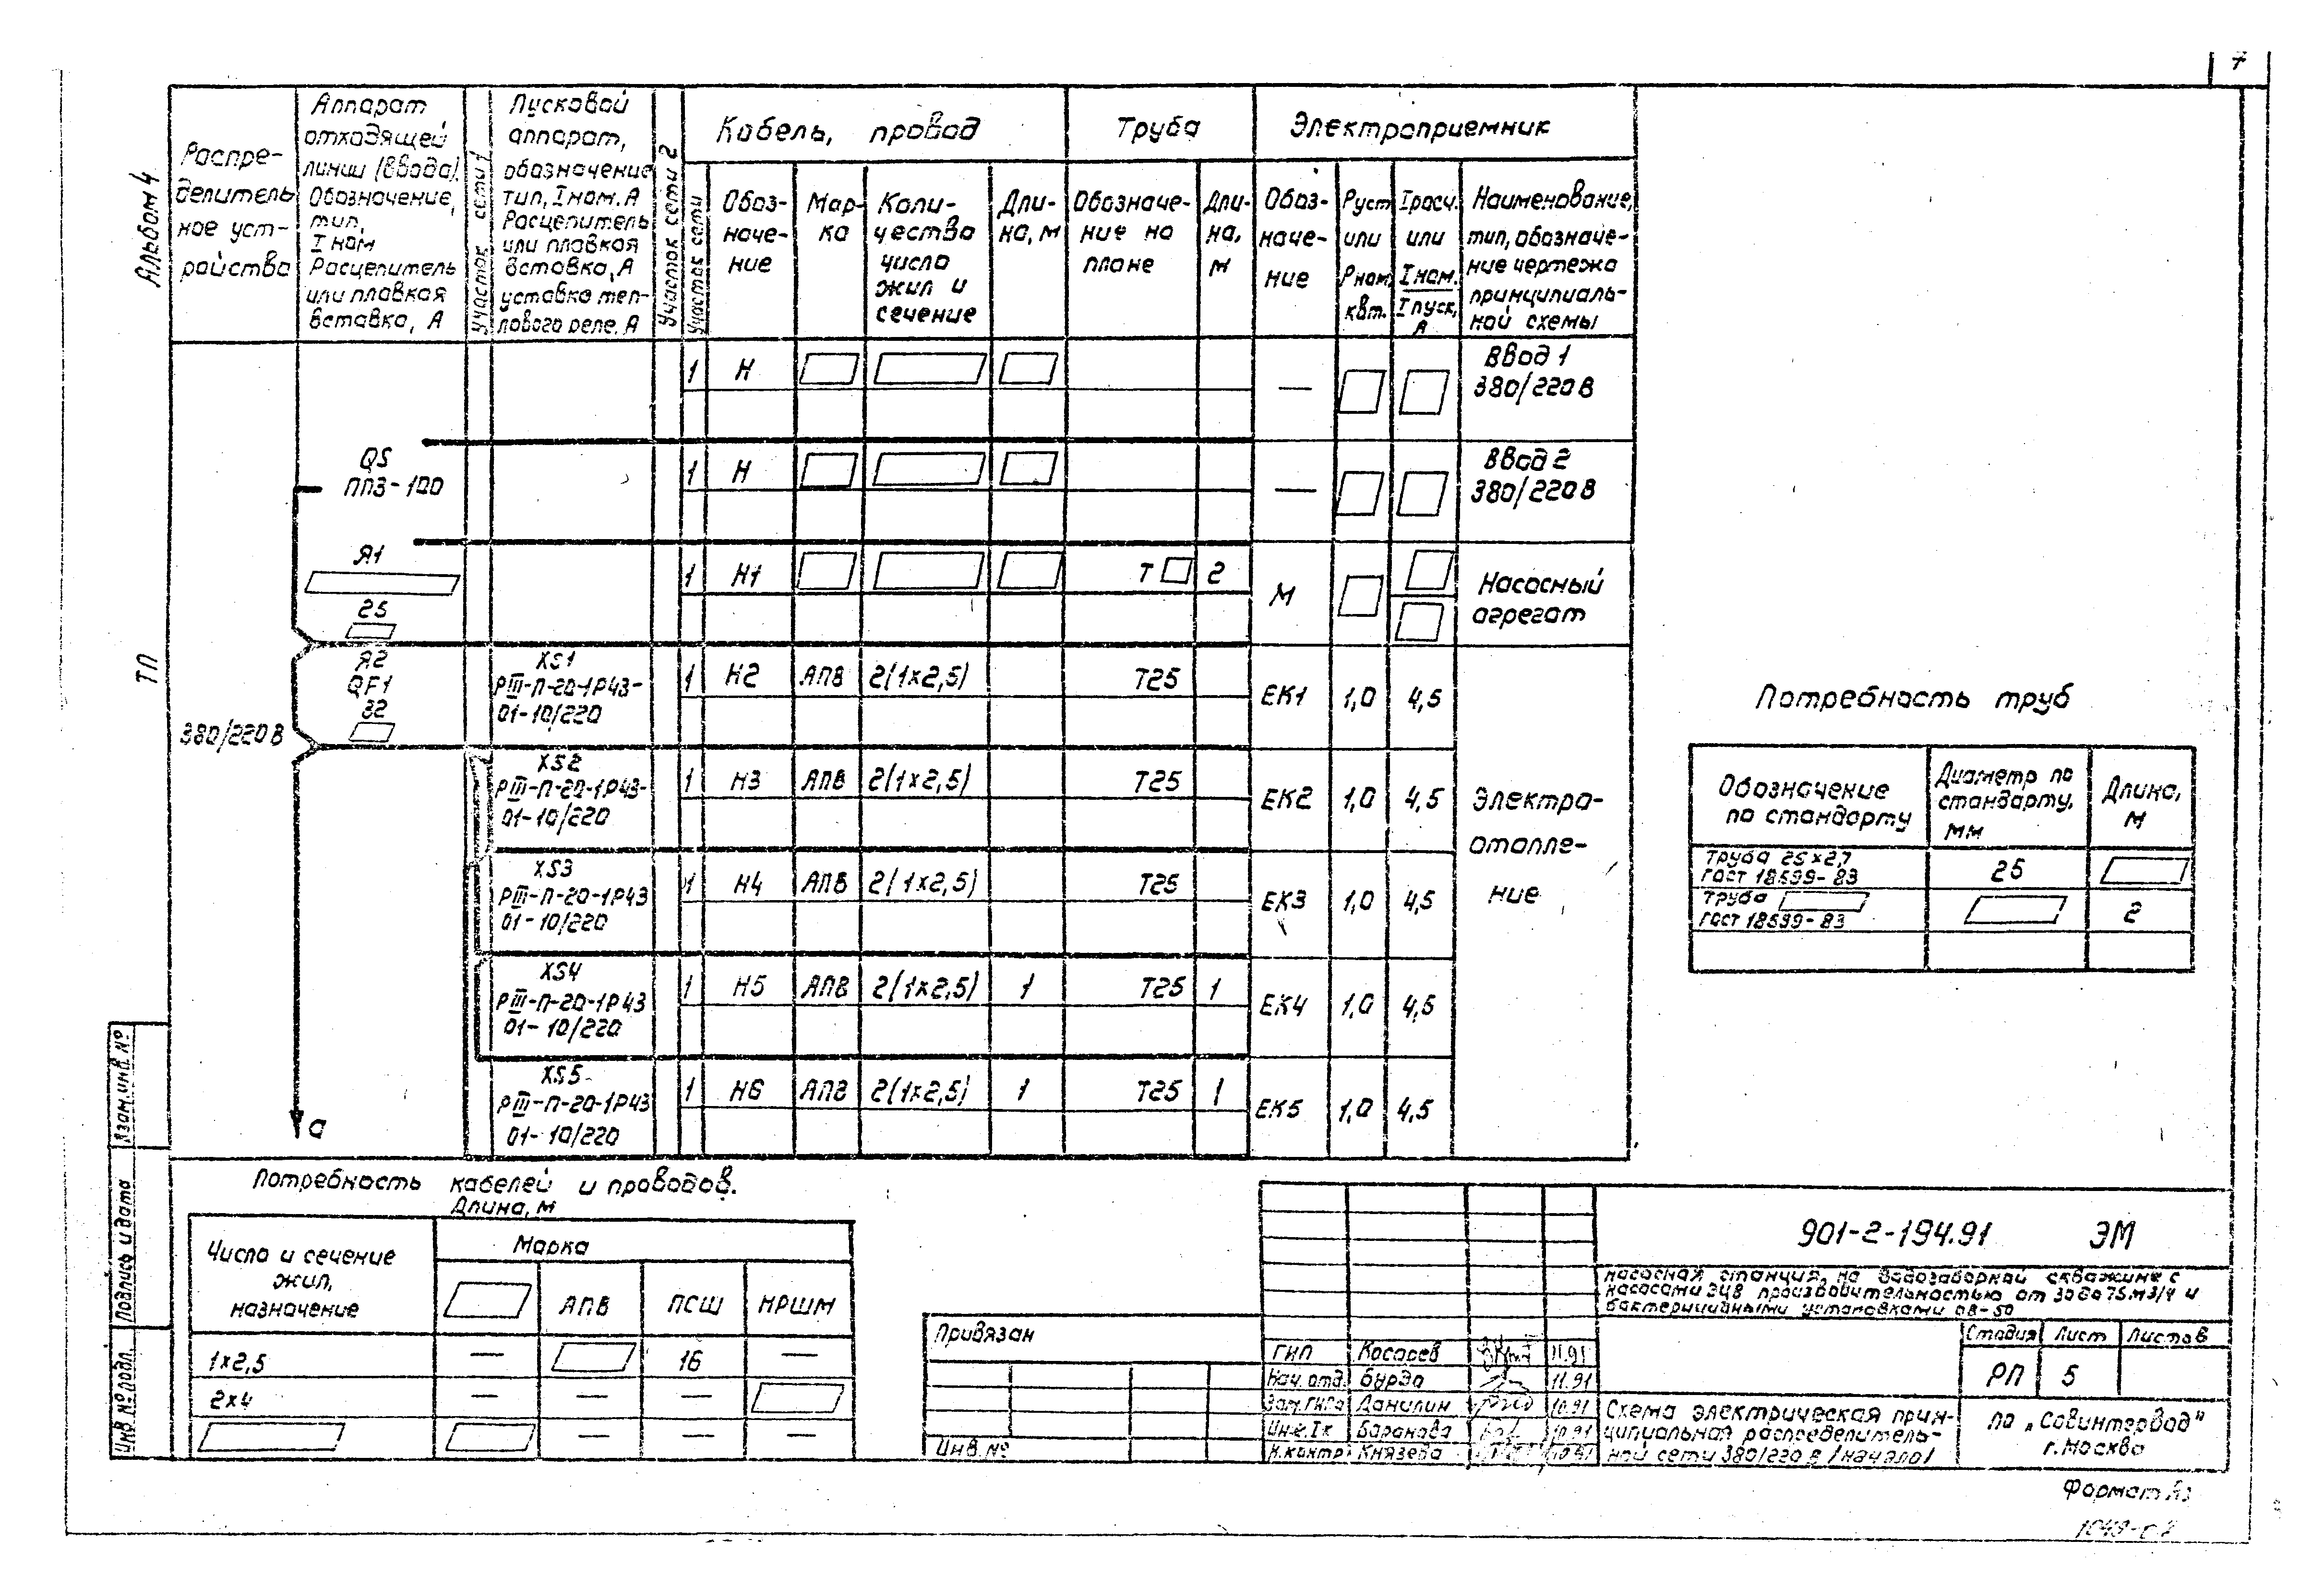 7
Альбом 4
ТП
Распре-
делитель
ное уст-
ройство
Аппарат
отходящей
линии (ввода).
Обозначение,
тип,
I ном
Расцепитель
или плавкая
вставка, А
Участок сети 1
Пусковой
аппарат,
обозначение
тип, Iном. А
Расцепитель
или плавкая
вставка, А
уставка теп-
лового реле, А
Участок сети 2
Участок сети
Кабель, провод
Обоз-
наче-
ние
Мар-
ка
Коли-
чество
число
жил и
сечение
Дли-
на, м
Труба
Обозначе-
ние на
плане
Дли-
на,
м
Электроприемник
Обоз-
наче-
ние
Руст
или
Рном,
квт.
Iрасч.
или
Iном.
Iпуск,
А
Наименование,
тип, обозначе-
ние чертежа
принципиаль-
ной схемы
1 Н — Ввод 1
380/220 В
QS
ПП3-100
1 Н — Ввод 2
380/220 В
Я1
25
1 Н1 Т 2 М Насосный
агрегат
380/220 В
Я2
QF1
32
XS1
РШ-П-20-1Р43-
01-10/220
1 Н2 АПВ 2(1х2,5) Т25 ЕК1 1,0 4,5
XS2
РШ-П-20-1Р43-
01-10/220
1 Н3 АПВ 2(1х2,5) Т25 ЕК2 1,0 4,5
Электро-
отопле-
ние
XS3
РШ-П-20-1Р43
01-10/220
1 Н4 АПВ 2(1х2,5) Т25 ЕК3 1,0 4,5
XS4
РШ-П-20-1Р43
01-10/220
1 Н5 АПВ 2(1х2,5) 1 Т25 1 ЕК4 1,0 4,5
XS5
РШ-П-20-1Р43
01-10/220
1 Н6 АПВ 2(1х2,5) 1 Т25 1 ЕК5 1,0 4,5
а
Потребность труб
Обозначение
по стандарту
Диаметр по
стандарту,
мм
Длина,
м
Труба 25х2,7
ГОСТ 18599-83
25
Труба
ГОСТ 18599-83
2
Потребность кабелей и проводов.
Длина, м
Число и сечение
жил,
назначение
Марка
АПВ ПСШ НРШМ
1х2,5 — 16 —
2х4 — — —
— — —
Взам. инв. №
Подпись и дата
Инв. № подл.
Привязан
Инв. №
ГИП Косарев 11.91
Нач. отд. Бурда 11.91
Зам. ГИПа Данилин 10.91
Инж. Iк Баранова 10.91
Н. контр Князева 10.91
901-2-194.91 ЭМ
Насосная станция на водозаборной скважине с
насосами ЭЦВ производительностью от 30 до 75 м3/ч и
бактерицидными установками ОВ-50
Стадия Лист Листов
РП 5
Схема электрическая прин-
ципиальная распределитель-
ной сети 380/220 в /начало/
ПО „Совинтервод"
г. Москва
Формат А3